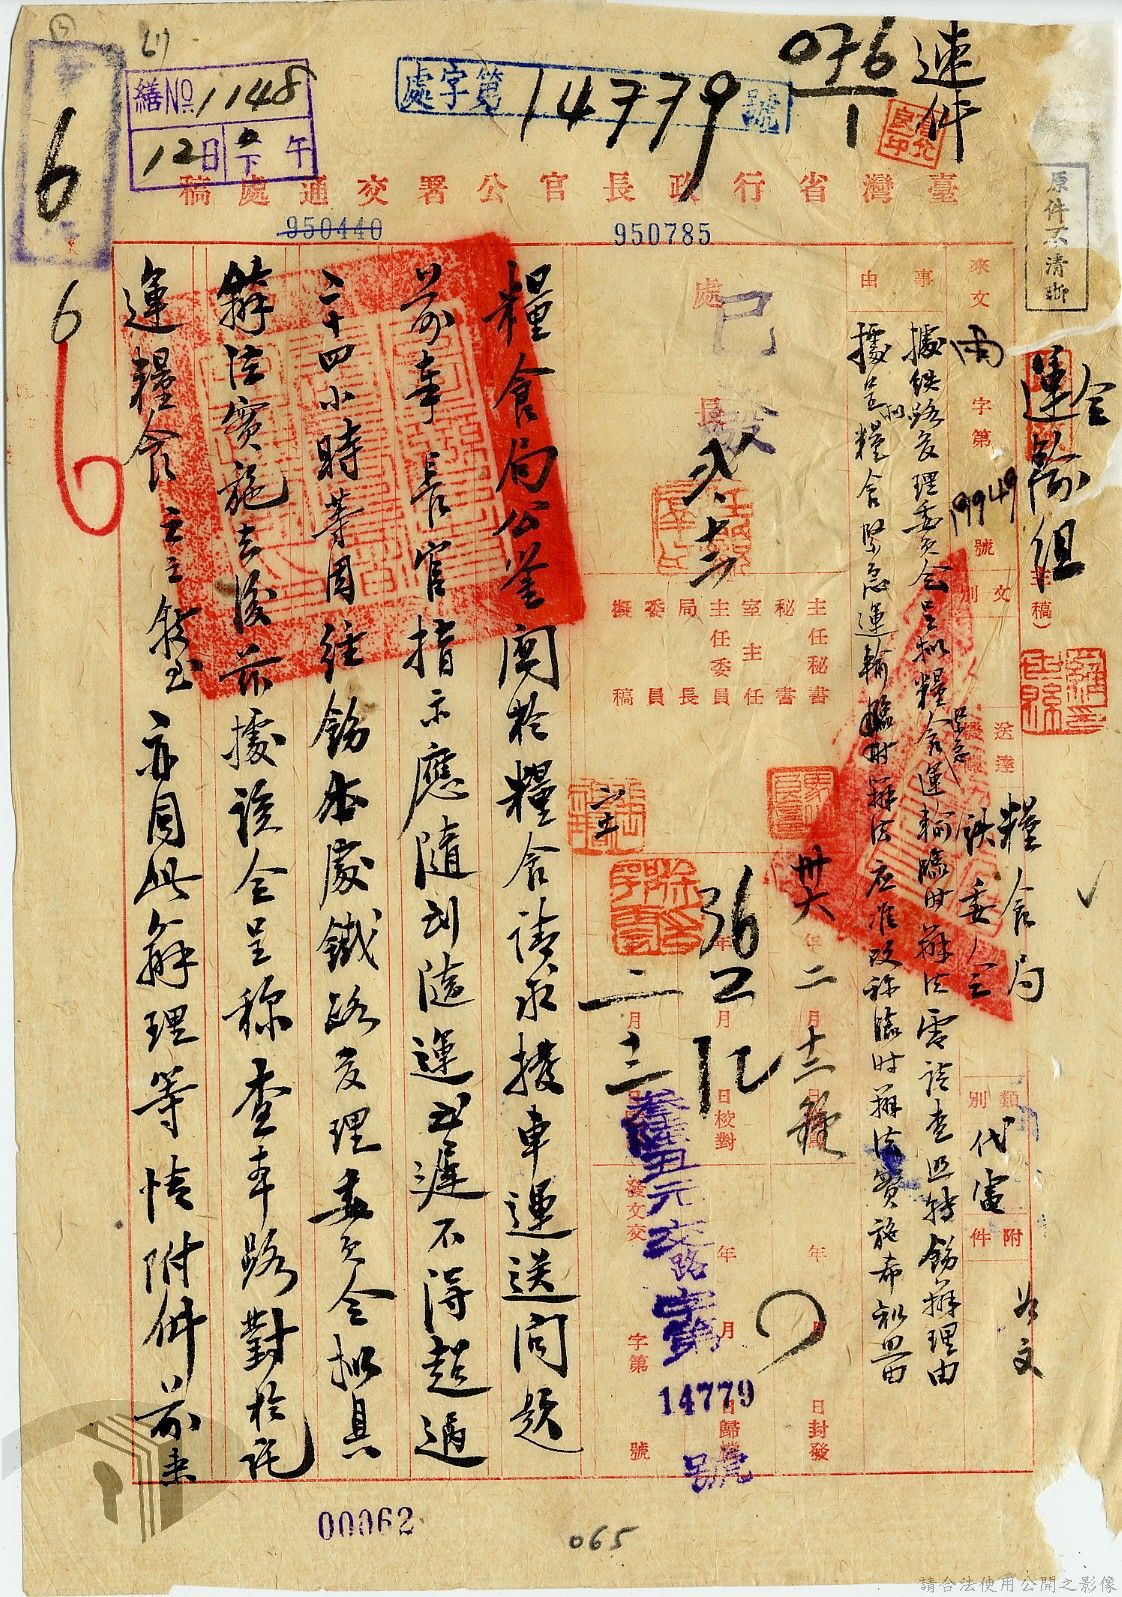 速件
076
1
處字第14779號
繕№1148
12日下午
6
6
原件不清晰
臺灣省行政長官公署交通處稿
950440
950785
運輸組
主稿)
來文
字第
19949
號
文別
送達機關
糧食局
鐵委會
類別
代電
附件
如文
事由
據鐵路管理委員會呈擬糧食緊急運輸臨時辦法電請查照轉飭辦理由
據呈擬糧食緊急運輸臨時辦法應准改称臨時辦法實施希知照由
處長
已發
主任秘書
秘書
室主任
主任委員
局長
委員
擬稿
卅六年二月十二日
36年2月12日校對
二月十二日
年月日封發
年月日歸檔
發文交
字第
號
叁陸丑元交路字第
14779
號
糧食局公鑒關於糧食請求撥車運送問題
前奉長官指示應隨到隨運至遲不得超過
二十四小時等因經飭本處鐵路管理委員會擬具
辦法實施去後茲據該会呈称查本路對於託
運糧食
亦同此辦理等情附件前来
00062
065
請合法使用公開之影像